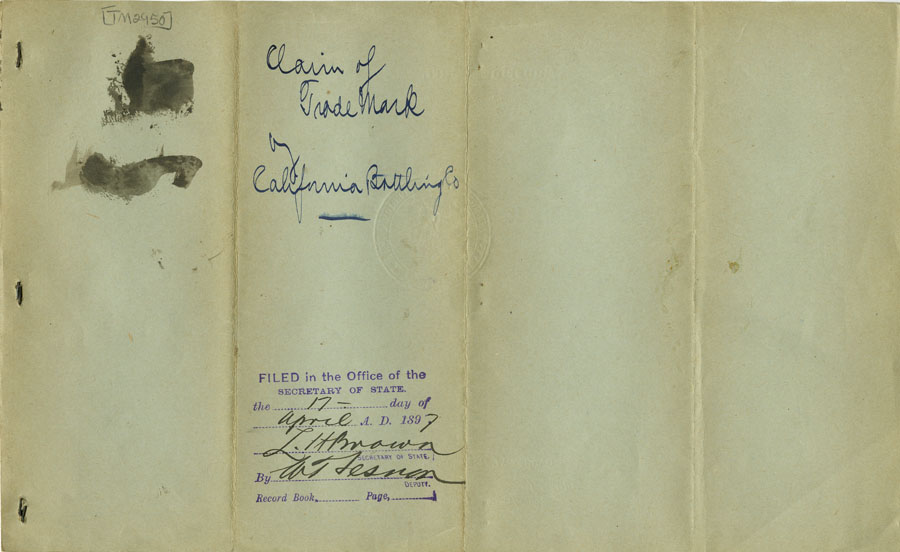 [TM2950]
Claim of
Trade Mark
by
California Bottling Co
FILED in the Office of the
SECRETARY OF STATE.
the 17- day of
April A. D. 1897
L. H. Brown
SECRETARY OF STATE.
By W T Sesnon
DEPUTY.
Record Book, Page,